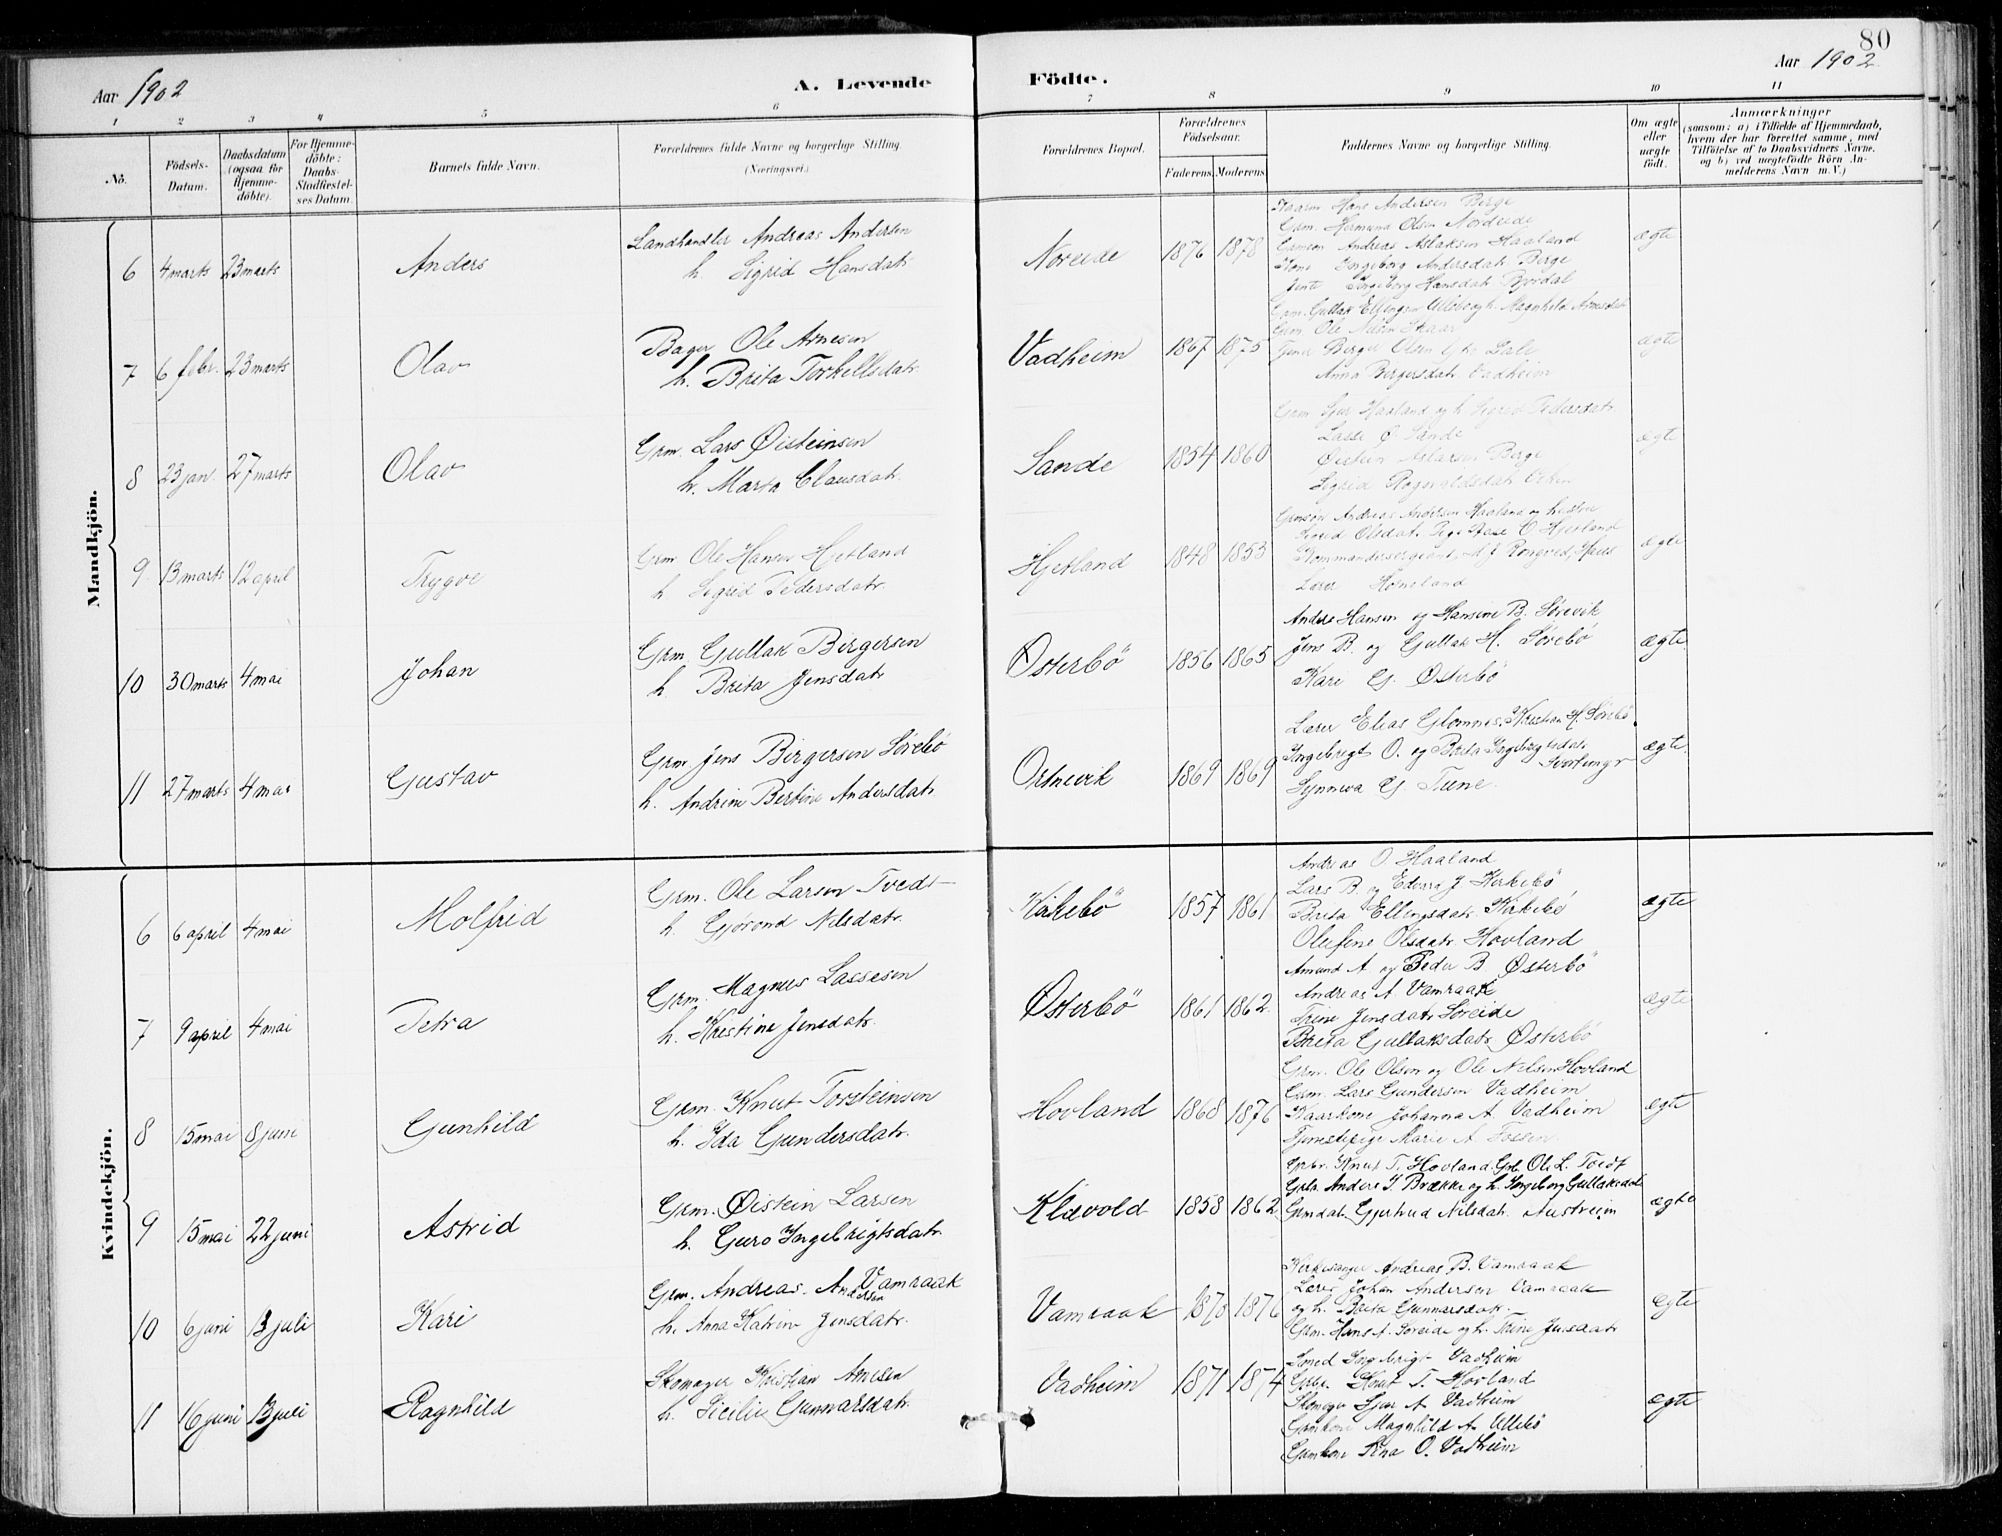 80
Aar 1902
A. Levende
Födte.
Aar 1902
1 2 3 4 5 6 7 8 9 10 11
No.
Födsels-Datum.
Daabsdatum (ogsaa for Hjemme-döbte).
For Hjemme-döbte: Daabs-Stadfæstel-ses Datum.
Barnets fulde Navn.
Forældrenes fulde Navne og borgerlige Stilling
(Næringsvei.)
Forældrenes Bopæl.
Forældrenes Födselsaar.
Faderens. Moderens.
Faddernes Navne og borgerlige Stilling.
Om ægte eller uægte födt.
Anmærkninger
(saasom: a) i Tilfælde af Hjemmedaab, hvem der har forrettet samme, med Tilföielse af to Daabsvidners Navne, og b) ved uægtefödte Börn An-melderens Navn m. V.)
Mandkjön.
6 4 marts 23 marts Anders
Landhandler Andreas Andersen
h. Sigrid Hansdatr
Noreide 1876 1878
Hans Andersen Berge
Grm. Hermund Olsen Nordeide
Andreas Aslaksen Haaland
Kone Ingeborg Andersdatr Berge
Jente Ingeborg Hansdatr Bjordal
ægte
7 6 febr. 23 marts Olav
Bager Ole Arnesen
h. Brita Torkellsdatr.
Vadheim 1867 1875
Grm. Gullak Ellingsen Ullebø og h. Magnhild Arnesdatr
Grm. Ole Nilsen Skaar
Birger Olsen Dale
Anna Bergersdatr Vadheim
ægte
8 23 jan. 27 marts Olav
Grm. Lars Øisteinsen
h. Marta Clausdatr.
Sande 1854 1860
Grm. Sjur Haaland og h. Sigrid Pedersdatr
Lasse Ø. Sande
Øistein Aslaksen Berge
Sigrid Ragnvaldsdatr
ægte
9 13 marts 12 april Trygve
Grm. Ole Hansen Hjetland
h. Sigrid Pedersdatr.
Hjetland 1848 1853
Andreas Andersen Haaland og hustru
Sigrid Olsdatr. O. Hjetland
Kommandersergeant Rongved, Haus
Lærer Hovland
ægte
10 30 marts 4 mai Johan
Grm. Gullak Birgersen
h. Brita Jensdatr
Østerbö 1856 1865
Anders Hansen og Hansine B. Sørevik
Jens B. og Gullak H. Sørebö
Kari G. Østerbö
ægte
11 27 marts 4 mai Gustav
Grm. Jens Birgersen Sørebö
h. Andrine Bertine Andersdatr.
Ortnevik 1869 1869
Lærer Elias Glomnes, Kristian H. Sørebö
Ingebrigt O. og Brita Ingebrigtsdatr
Synneva G. Tune.
ægte.
Kvindekjön.
6 6 april 4 mai Molfrid
Grm. Ole Larsen Tvedt
h. Gjörond Nilsdatr.
Kirkebö 1857 1861
Andreas O Haaland
Lars B. og Edvard J. Kirkebö
Brita Ellingsdatr. Kirkebö
Olufine Olsdatr. Hovland
ægte
7 9 april 4 mai Petra
Grm. Magnus Lassesen
h. Kristine Jensdatr.
Østerbö 1861 1862
Amund A. og Peder B. Østerbö
Andreas A. Vamraak
Trine Jensdatr Søreide
Brita Gullaksdatr. Østerbö
ægte
8 15 mai 8 juni Gunhild
Grm. Knut Torsteinsen
h. Ida Gundersdatr.
Hovland 1868 1876
Grm. Ole Olsen og Ole Nilsen Hovland
Grm. Lars Gundersen Vadheim
Johanna A. Vadheim
Tjenestepige Marie A. Fossen.
ægte
9 15 mai 22 juni Astrid
Grm. Øistein Larsen
h. Guro Ingebrigtsdatr.
Klævold 1858 1862
Knut T. Hovland, Grb. Ole L. Tvedt
Grbr. Anders I. Brække og h. Ingeborg Gullaksdatr
Grmdatr. Gjertrud Nilsdatr. Austreim
ægte
10 6 juni 13 juli Kari
Grm. Andreas Andersen Vamraak
h. Anna Katrine Jensdatr.
Vamraak 1870 1876
Kirkesanger Andreas B. Vamraak
Lærer Johan Andersen Vamraak
og h. Brita Gunnarsdatr.
Grm. Hans A. Søreide og h. Trine Jensdatr
ægte
11 16 juni 13 juli Ragnhild
Skomager Kristian Anesen
h. Sicilie Gunnarsdatr.
Vadheim 1871 1874
Smed Ingebrigt Vadheim
Grbr. Knut T. Hovland
Skomager Sjur A Vadheim
Grmkone Magnhild A. Ullebö
Grmkone Ana O. Vadheim
ægte